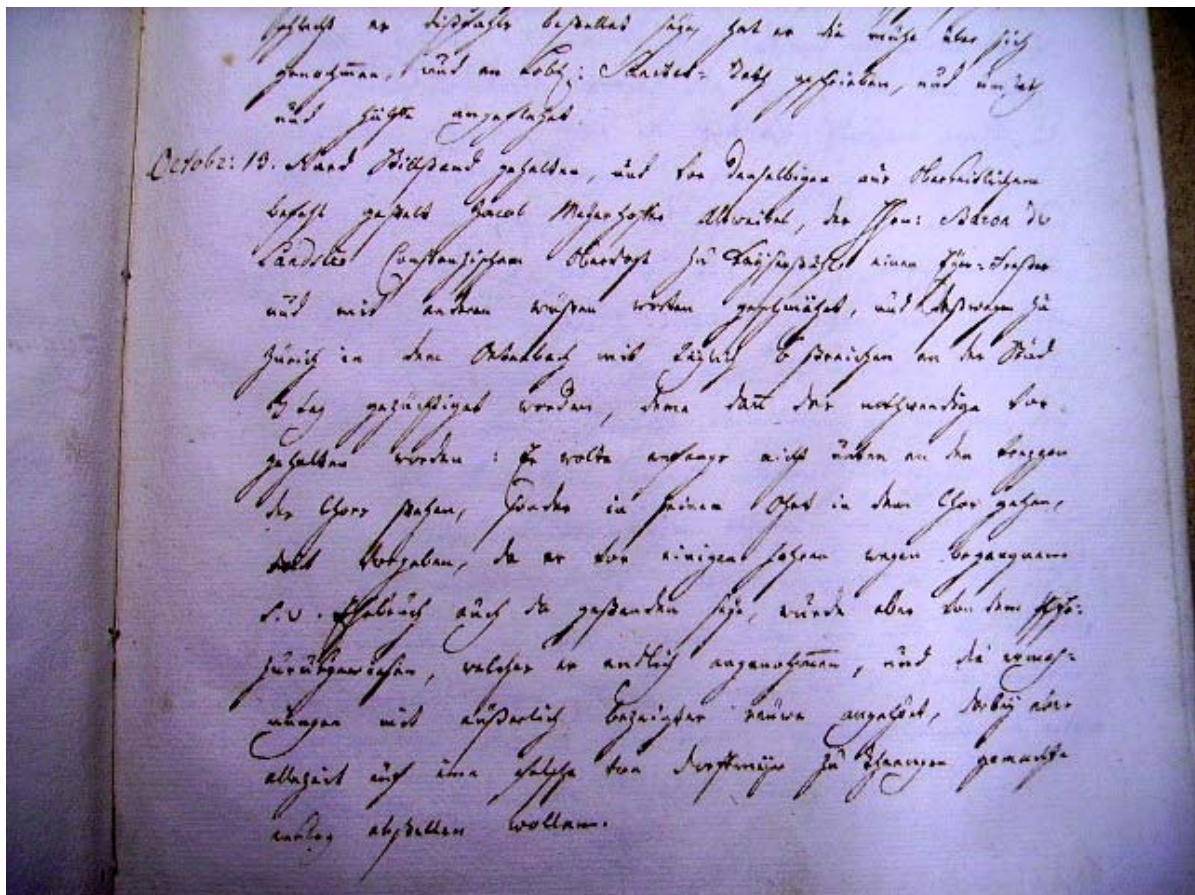 schlecht er dißfahls bestellet seye, hat er die mühe über sich
genohmen, und an Lobl: Sanitet- geschrieben, und um
und hülffe angeflehet.
Octobr: 13. Ward Stillstand gehalten, und vor denselbigen aus Oberkeitlichem
befehl gestelt Jacob Meyerhoffer Altweibel, der Hhrn: Baron de
Landsee Constanzischem Obervogt zu Keyserstuhl einen
und mit anderen wüsten worten geschmähet, und deßwegen zu
Zürich in dem Ötenbach mit täglich 6 streichen an der Stud
3 tag gezüchtiget worden, deme dañ das nothwendige vor-
gehalten worden: Er wolte anfangs nicht unten an den treppen
des Chors stehen, sonder in seinen Ohrt in dem Chor gehen,
mit vorgeben, da er vor einigen Jahren wegen begangnem
s.v. Ehebruch auch da gestanden seye, wurde aber von dem
zurükgewiesen, welches er endlich angenohmen, und die ermah-
nungen mit äußerlich bezeugter reuwe angehört, darbey aber
allezeit auf eine solche von Dorffmeyer zu gemachte
abstellen wollen.